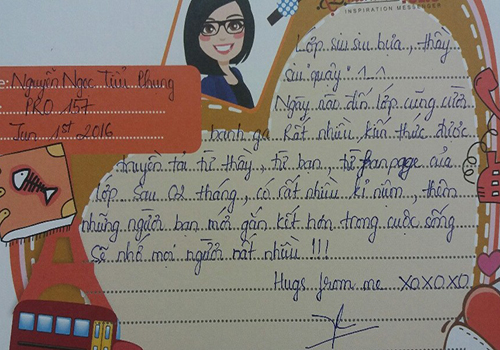 INSPIRATION MESSENGER
Lớp siu siu bựa, thầy
siu quậy ^_^
Nguyễn Ngọc Thủy Chung
PRO 157
Jun 1st 2016
Ngày nào đến lớp cũng cười
banh ga. Rất nhiều kiến thức được
truyền tải từ thầy, từ bạn, từ fanpage của
lớp. Sau 02 tháng, có rất nhiều kỉ niệm, thêm
những người bạn mới gắn kết hơn trong cuộc sống
Sẽ nhớ mọi người rất nhiều !!!
Hugs from me XOXOXO